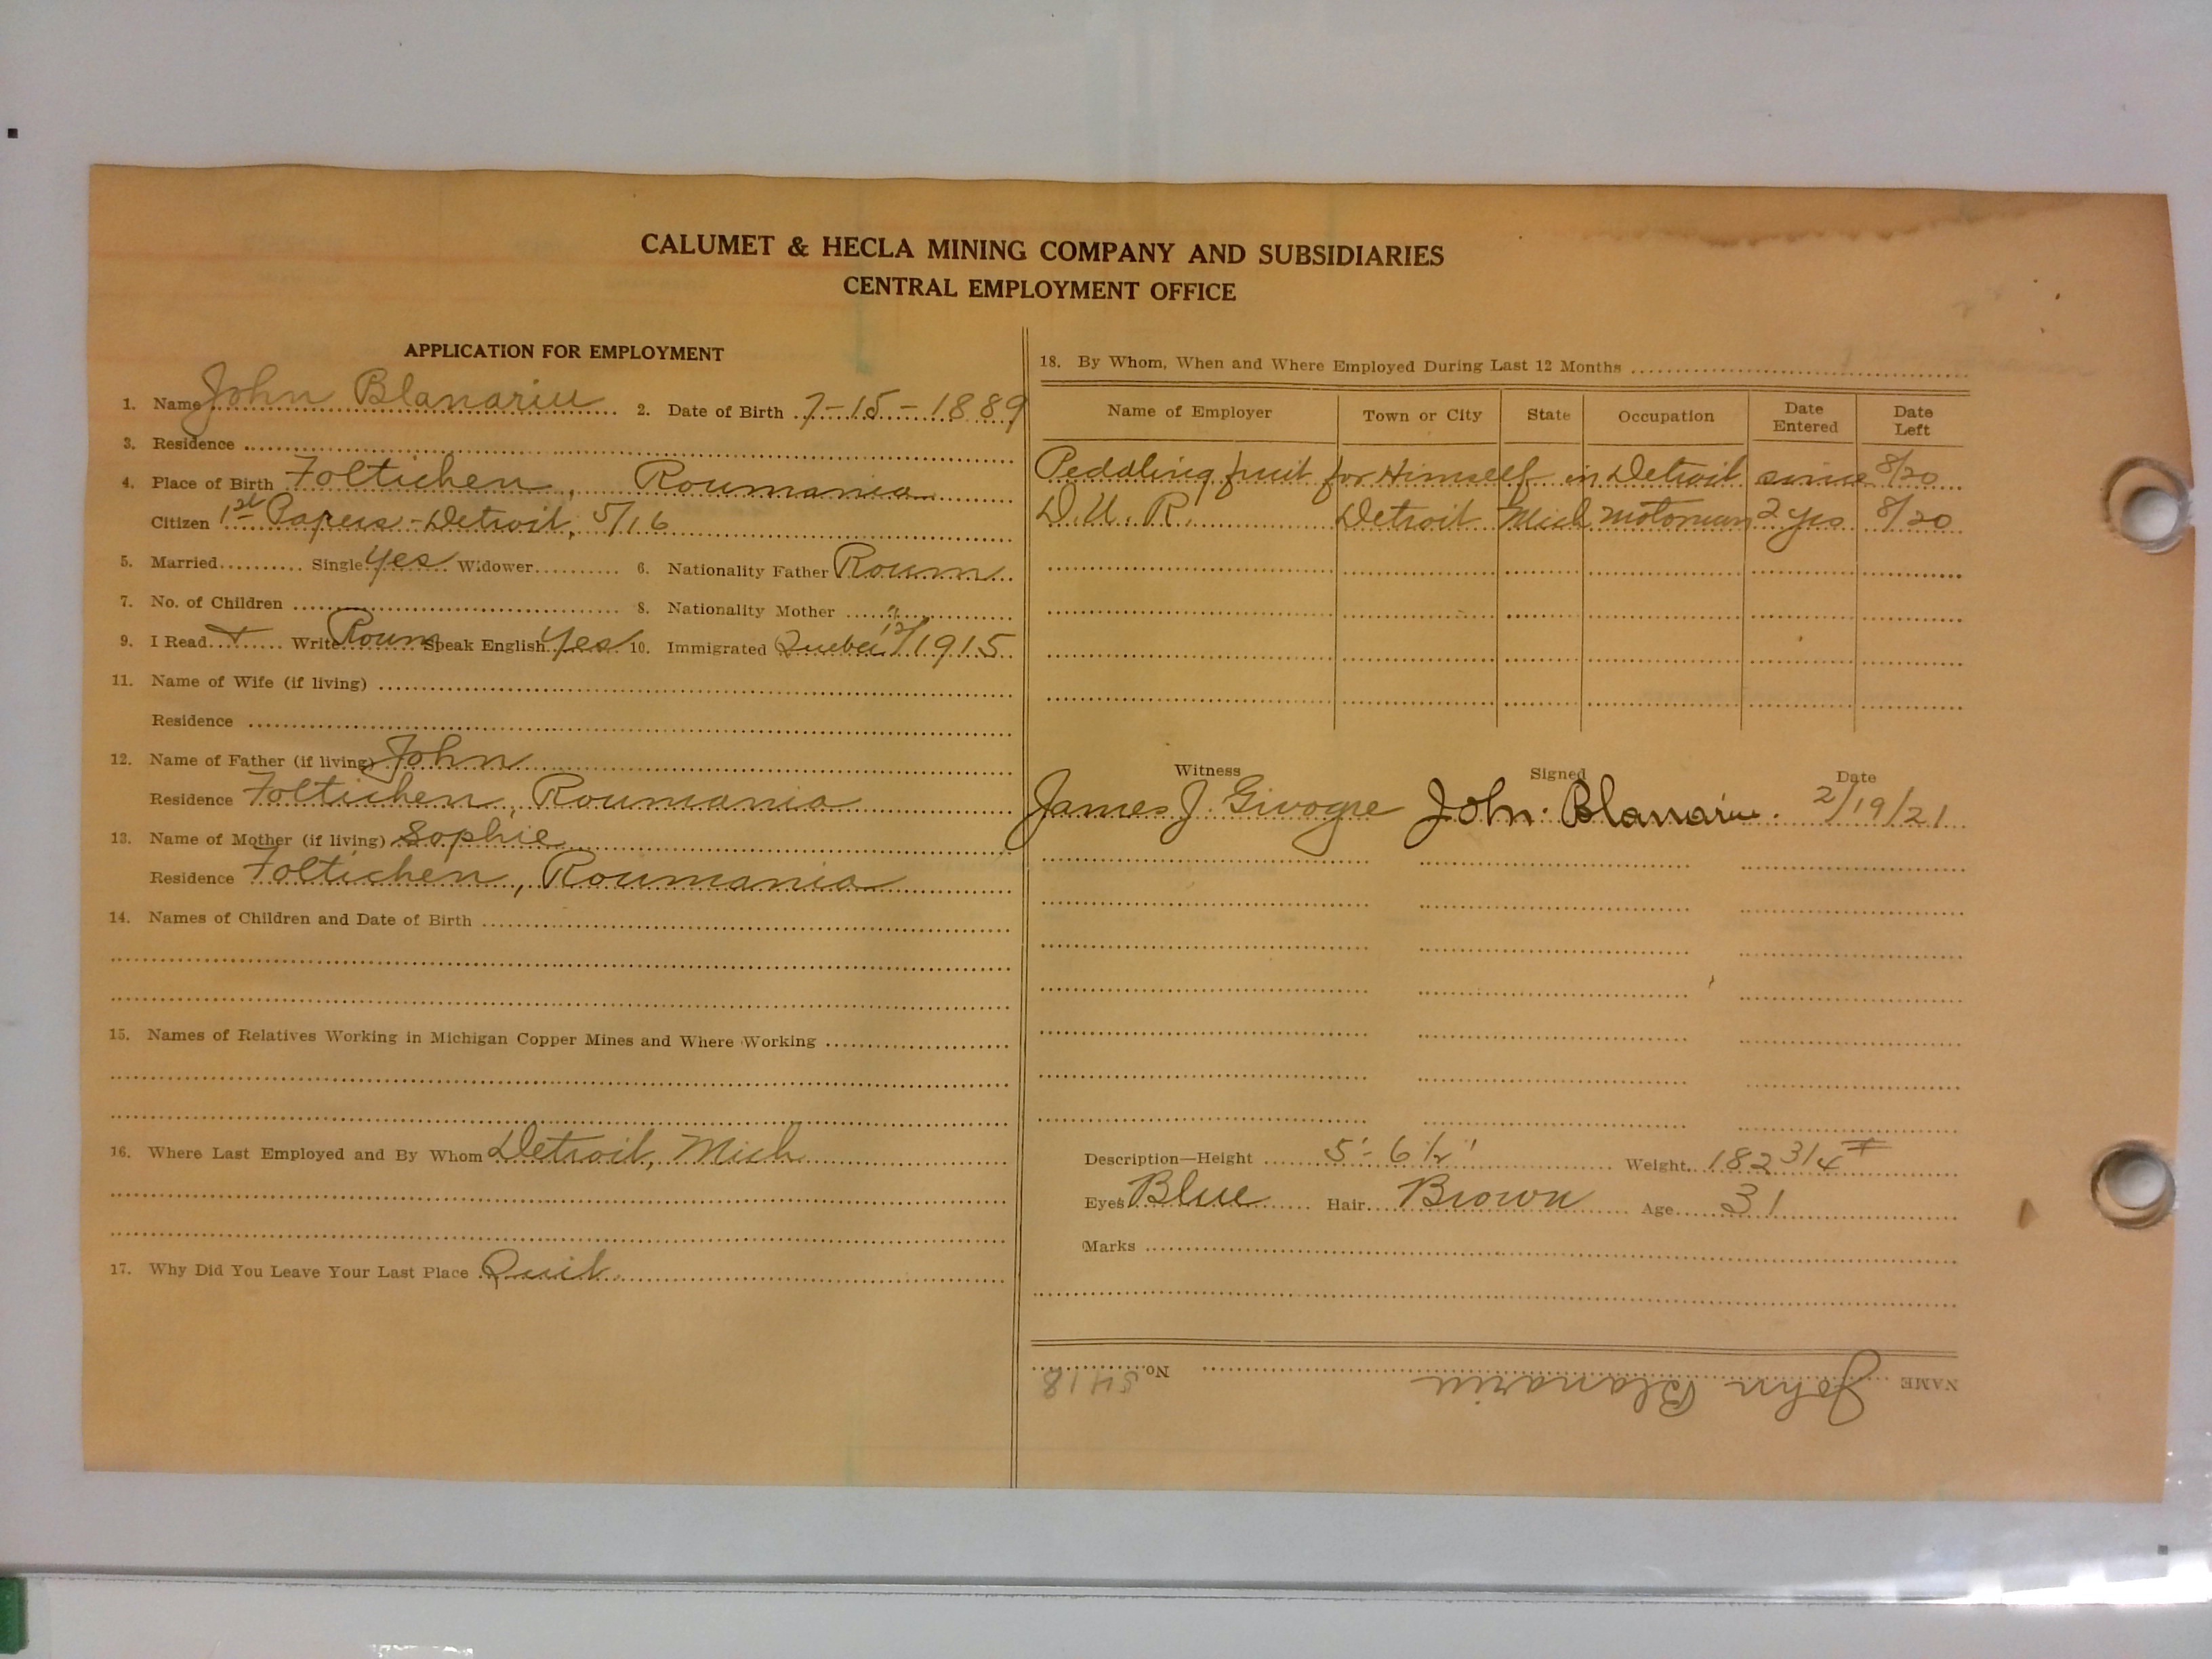 CALUMET & HECLA MINING COMPANY AND SUBSIDIARIES
CENTRAL EMPLOYMENT OFFICE
APPLICATION FOR EMPLOYMENT
1. Name John Blanariu 2. Date of Birth 7-15-1889
3. Residence
4. Place of Birth Foltichen, Roumania
Citizen 1st Papers - Detroit, 5/16
5. Married Single Yes Widower 6. Nationality Father Roum
7. No. of Children 8. Nationality Mother "
9. I Read + Write Roum Speak English Yes 10. Immigrated Quebec 12/1915
11. Name of Wife (if living)
Residence
12. Name of Father (if living) John
Residence Foltichen, Roumania
13. Name of Mother (if living) Sophie
Residence Foltichen, Roumania
14. Names of Children and Date of Birth
15. Names of Relatives Working in Michigan Copper Mines and Where Working
16. Where Last Employed and By Whom Detroit, Mich
17. Why Did You Leave Your Last Place Quit
18. By Whom, When and Where Employed During Last 12 Months
Name of Employer Town or City State Occupation Date Entered Date Left
Peddling fruit for Himself in Detroit since 8/20
D.U.R. Detroit Mich motorman 2 yrs 8/20
Witness Signed Date
James J. John Blanariu. 2/19/21
Description—Height 5'-6 1/2" Weight 182 3/4 #
Eyes Blue Hair Brown Age 31
Marks
NAME John Blanariu No. 5418